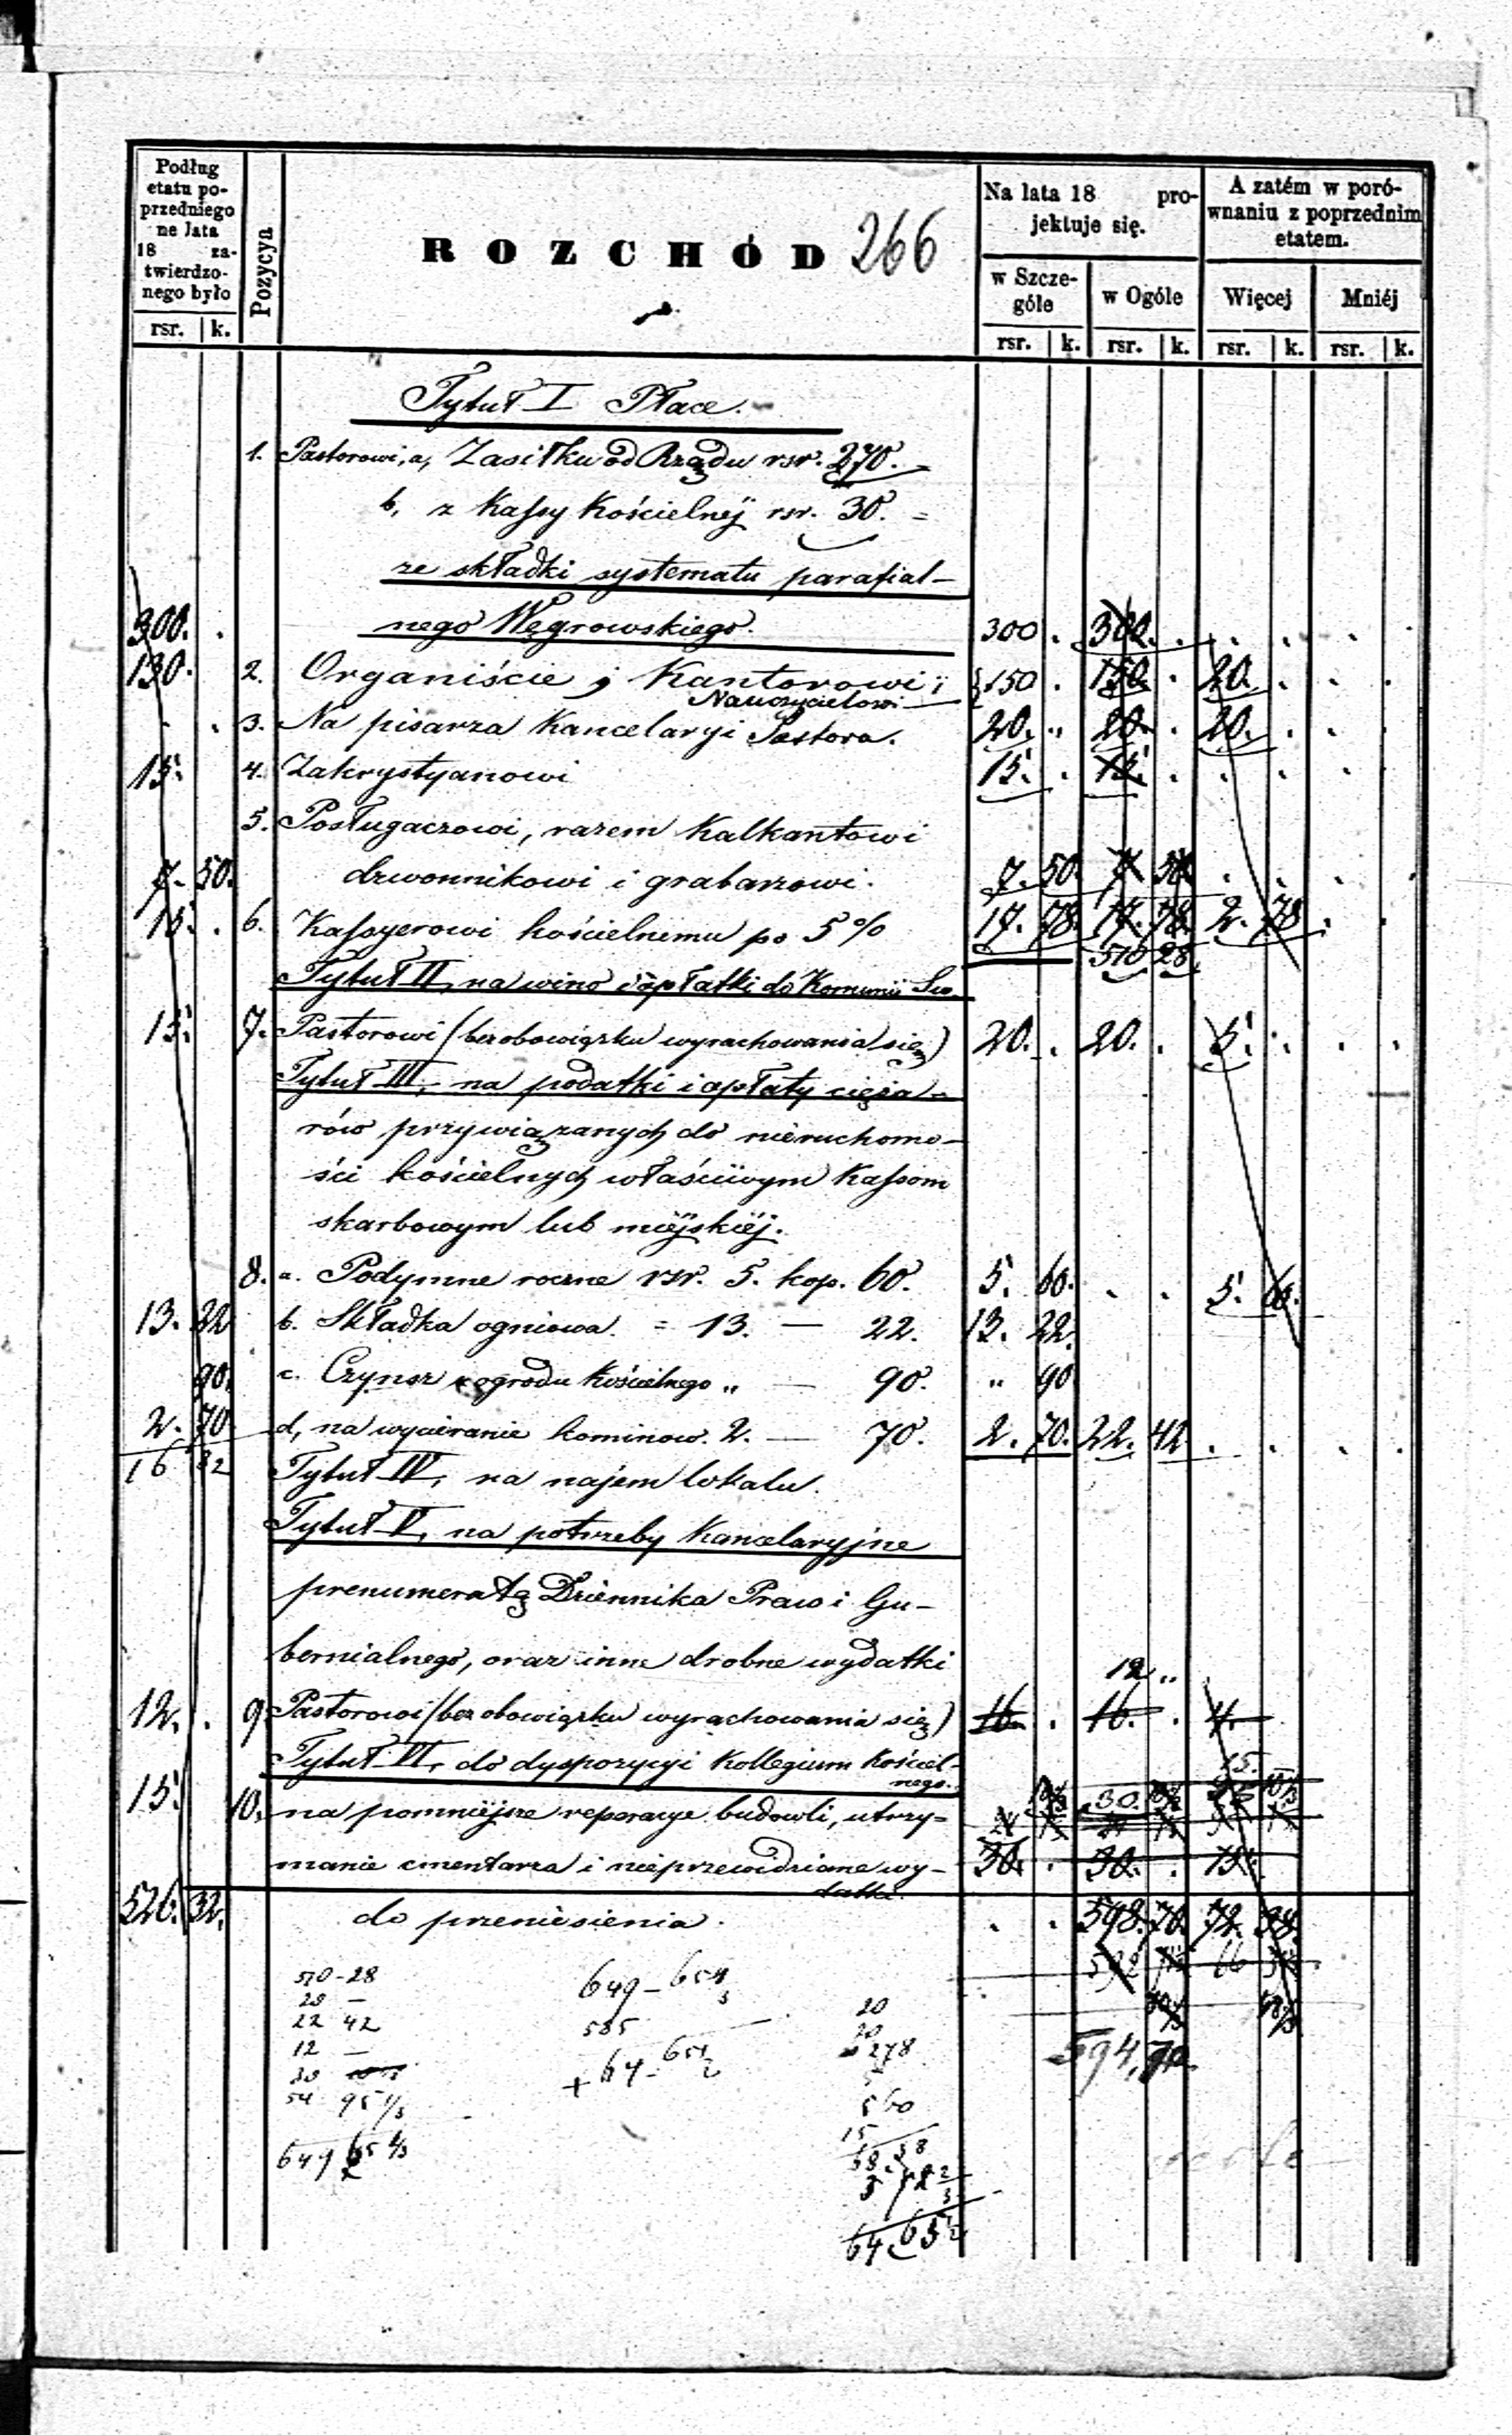 Podług etatu po- przedniego ne lata 18 za- twierdzo- nego było
Pozycya
ROZCHÓD 266
Na lata 18 pro- jektuje się.
A zatém w poró- wnaniu z poprzednim etatem.
w Szcze- góle
w Ogóle
Więcej
Mniéj
rsr. k. rsr. k. rsr. k. rsr. k. rsr. k.
Tytuł I Płace.
1. Pastorowi, a, Zasiłku od Rządu rsr. 270.
b, z Kassy Kościelnéj rsr. 30. =
ze składki systematu parafial-
300. . nego Węgrowskiego. 300 . 300. . . . . .
130. 2. Organiście i Kantorowi i 150 . 150 . 20. . . .
Nauczycielowi
. . 3. Na pisarza Kancelaryi Pastora. 20. „ 20. . 20. . . .
15. 4. Zakrystyanowi 15. . 15. . . . . .
5. Posługaczowi, razem Kalkantowi
7. 50. dzwonnikowi i grabarzowi. 7. 50. 7. 50. . . . .
15. . 6. Kassyerowi kościelnemu po 5% 17. 78. 17. 78. 2. 78 . .
510 28
Tytuł II, na wino i opłatki do Komunii Św.
15. 7. Pastorowi (bez obowiązku wyrachowania się) 20. . 20. . 5. . . .
Tytuł III, na podatki i opłaty cięża-
rów przywiązanych do nieruchomo-
ści kościelnych właściwym Kassom
skarbowym lub miéjskiéj.
8. a. Podymne roczne rsr. 5. kop. 60. 5. 60. . . 5. 60.
13. 22 b. Składka ogniowa. = 13. — 22. 13. 22.
90. c. Czynsz z ogrodu Kościelnego „ — 90. „ 90
2. 70 d, na wycieranie kominow. 2. — 70. 2. 70. 22. 42 . . . .
16 82 Tytuł IV, na najem lokalu.
Tytuł V, na potrzeby Kancelaryjne
prenumeratę Dziennika Praw i Gu-
bernialnego, oraz inne drobne wydatki
12 „
12. . 9 Pastorowi (bez obowiązku wyrachowania się) 16. . 16. . 4.
Tytuł VI, do dyspozycyi Kollegium Kościel-
nego.
15.
15. 10. na pomniéjsze reperacye budowli, utrzy- 30.
manie cmentarza i nieprzewidziane wy- 30. . 30. . 15.
datki.
526. 32. do przeniesienia. . . 598. 70. 72. 38.
510 - 28
20 —
22 42
12 —
30
54 95 1/3
649 65 1/3
649 -
585
+ 64 -
20
20
278
5
5 60
15
594,70